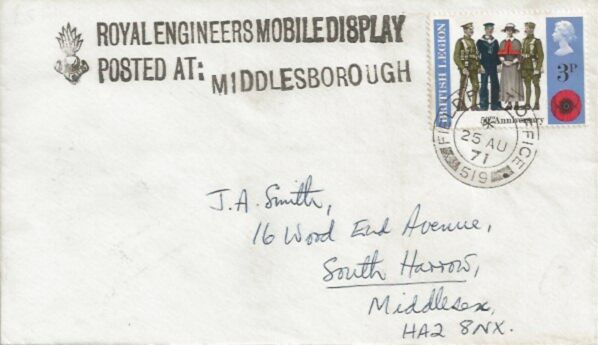 ROYAL ENGINEERS MOBILE DISPLAY
POSTED AT:
MIDDLESBOROUGH
BRITISH LEGION
3P
50th Anniversary
FIELD POST OFFICE
25 AU
71
519
J.A. Smith,
16 Wood End Avenue,
South Harrow,
Middlesex,
HA2 8NX.